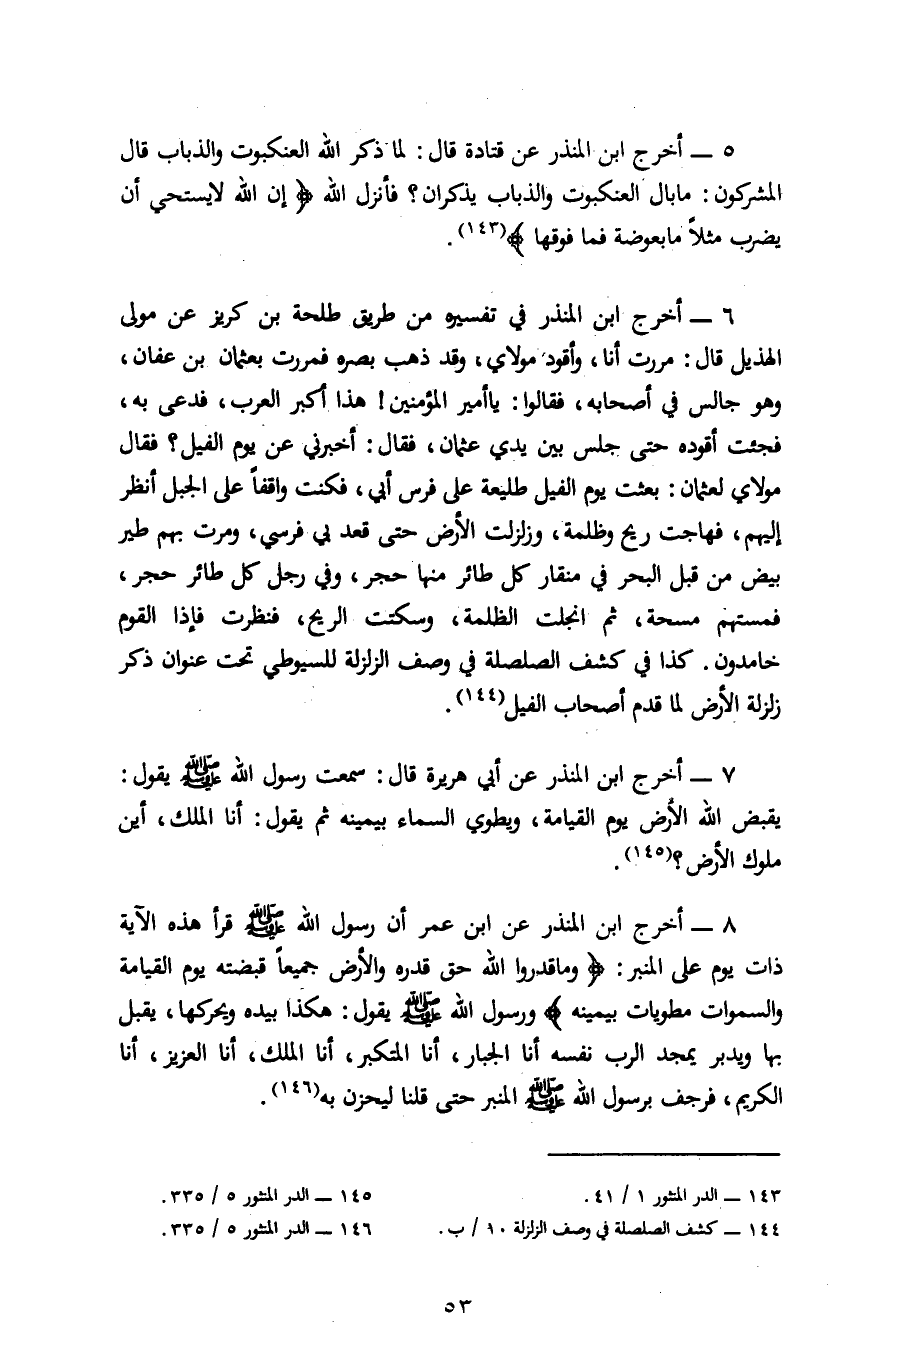 ٥ — أخرج ابن المنذر عن قتادة قال : لما ذكر الله العنكبوت والذباب قال
المشركون : مابال العنكبوت والذباب يذكران ؟ فأنزل الله ﴿ إن الله لايستحي أن
يضرب مثلاً مابعوضة فما فوقها ﴾(١٤٣) .
٦ — أخرج ابن المنذر في تفسيره من طريق طلحة بن كريز عن مولى
الهذيل قال : مررت أنا ، وأقود مولاي ، وقد ذهب بصره فمررت بعثمان بن عفان ،
وهو جالس في أصحابه ، فقالوا : ياأمير المؤمنين ! هذا أكبر العرب ، فدعى به ،
فجئت أقوده حتى جلس بين يدي عثمان ، فقال : أخبرني عن يوم الفيل ؟ فقال
مولاي لعثمان : بعثت يوم الفيل طليعة على فرس أبي ، فكنت واقفاً على الجبل أنظر
إليهم ، فهاجت ريح وظلمة ، وزلزلت الأرض حتى قعد بي فرسي ، ومرت بهم طير
بيض من قبل البحر في منقار كل طائر منها حجر ، وفي رجل كل طائر حجر ،
فمستهم مسحة ، ثم انجلت الظلمة ، وسكتت الريح ، فنظرت فإذا القوم
خامدون . كذا في كشف الصلصلة في وصف الزلزلة للسيوطي تحت عنوان ذكر
زلزلة الأرض لما قدم أصحاب الفيل(١٤٤) .
٧ — أخرج ابن المنذر عن أبي هريرة قال : سمعت رسول الله ﷺ يقول :
يقبض الله الأرض يوم القيامة ، ويطوي السماء بيمينه ثم يقول : أنا الملك ، أين
ملوك الأرض ؟(١٤٥) .
٨ — أخرج ابن المنذر عن ابن عمر أن رسول الله ﷺ قرأ هذه الآية
ذات يوم على المنبر : ﴿ وماقدروا الله حق قدره والأرض جميعاً قبضته يوم القيامة
والسموات مطويات بيمينه ﴾ ورسول الله ﷺ يقول : هكذا بيده ويحركها ، يقبل
بها ويدبر يمجد الرب نفسه أنا الجبار ، أنا المتكبر ، أنا الملك ، أنا العزيز ، أنا
الكريم ، فرجف برسول الله ﷺ المنبر حتى قلنا ليحزن به(١٤٦) .
١٤٣ — الدر المنثور ١ / ٤١ .
١٤٤ — كشف الصلصلة في وصف الزلزلة ١٠ / ب .
١٤٥ — الدر المنثور ٥ / ٣٣٥ .
١٤٦ — الدر المنثور ٥ / ٣٣٥ .
٥٣